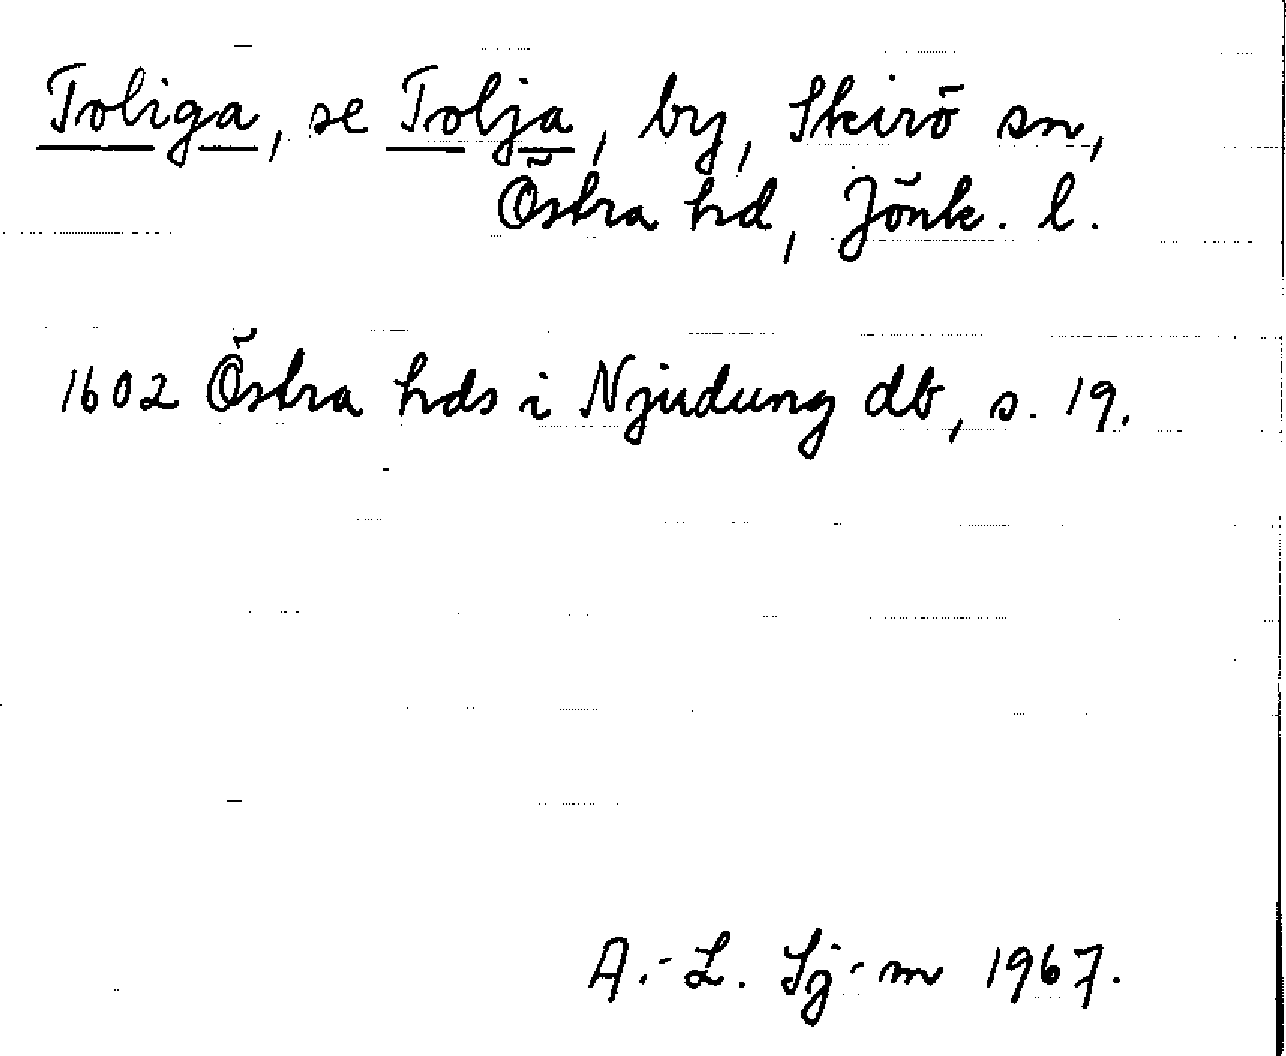 Toliga, se Tolja, by, Skirö sn,
Östra hd, Jönk. l.
1602 Östra hds i Njudung db, s. 19.
A.-L. Sj-m 1967.